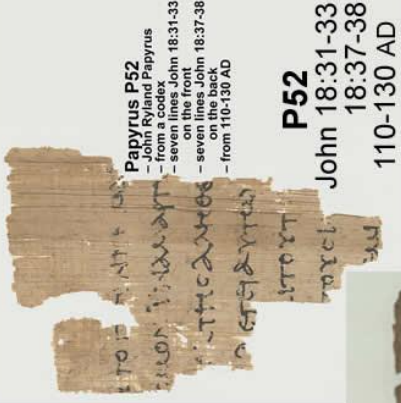 Papyrus P52
– John Ryland Papyrus
– from a codex
– seven lines John 18:31-33
on the front
– seven lines John 18:37-38
on the back
– from 110-130 AD
P52
John 18:31-33
18:37-38
110-130 AD
τηϲ αληθε
αυτω
τουτ
ιουδα